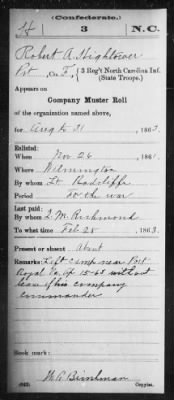 (Confederate.)
H 3 N.C.
Robert A. Hightower
Pvt, Co. F, 3 Reg't North Carolina Inf.
(State Troops.)
Appears on
Company Muster Roll
of the organization named above,
for Aug to 31, 1863.
Enlisted:
When Nov 26, 1861.
Where Wilmington
By whom Lt. Radcliffe
Period For the war
Last paid:
By whom J. M. Richmond
To what time Feb 28, 1863.
Present or absent About
Remarks: Left camp near Port
Royal Va, Ap 15-63 without
leave of his company
commander
Book mark:
(642) Copyist.